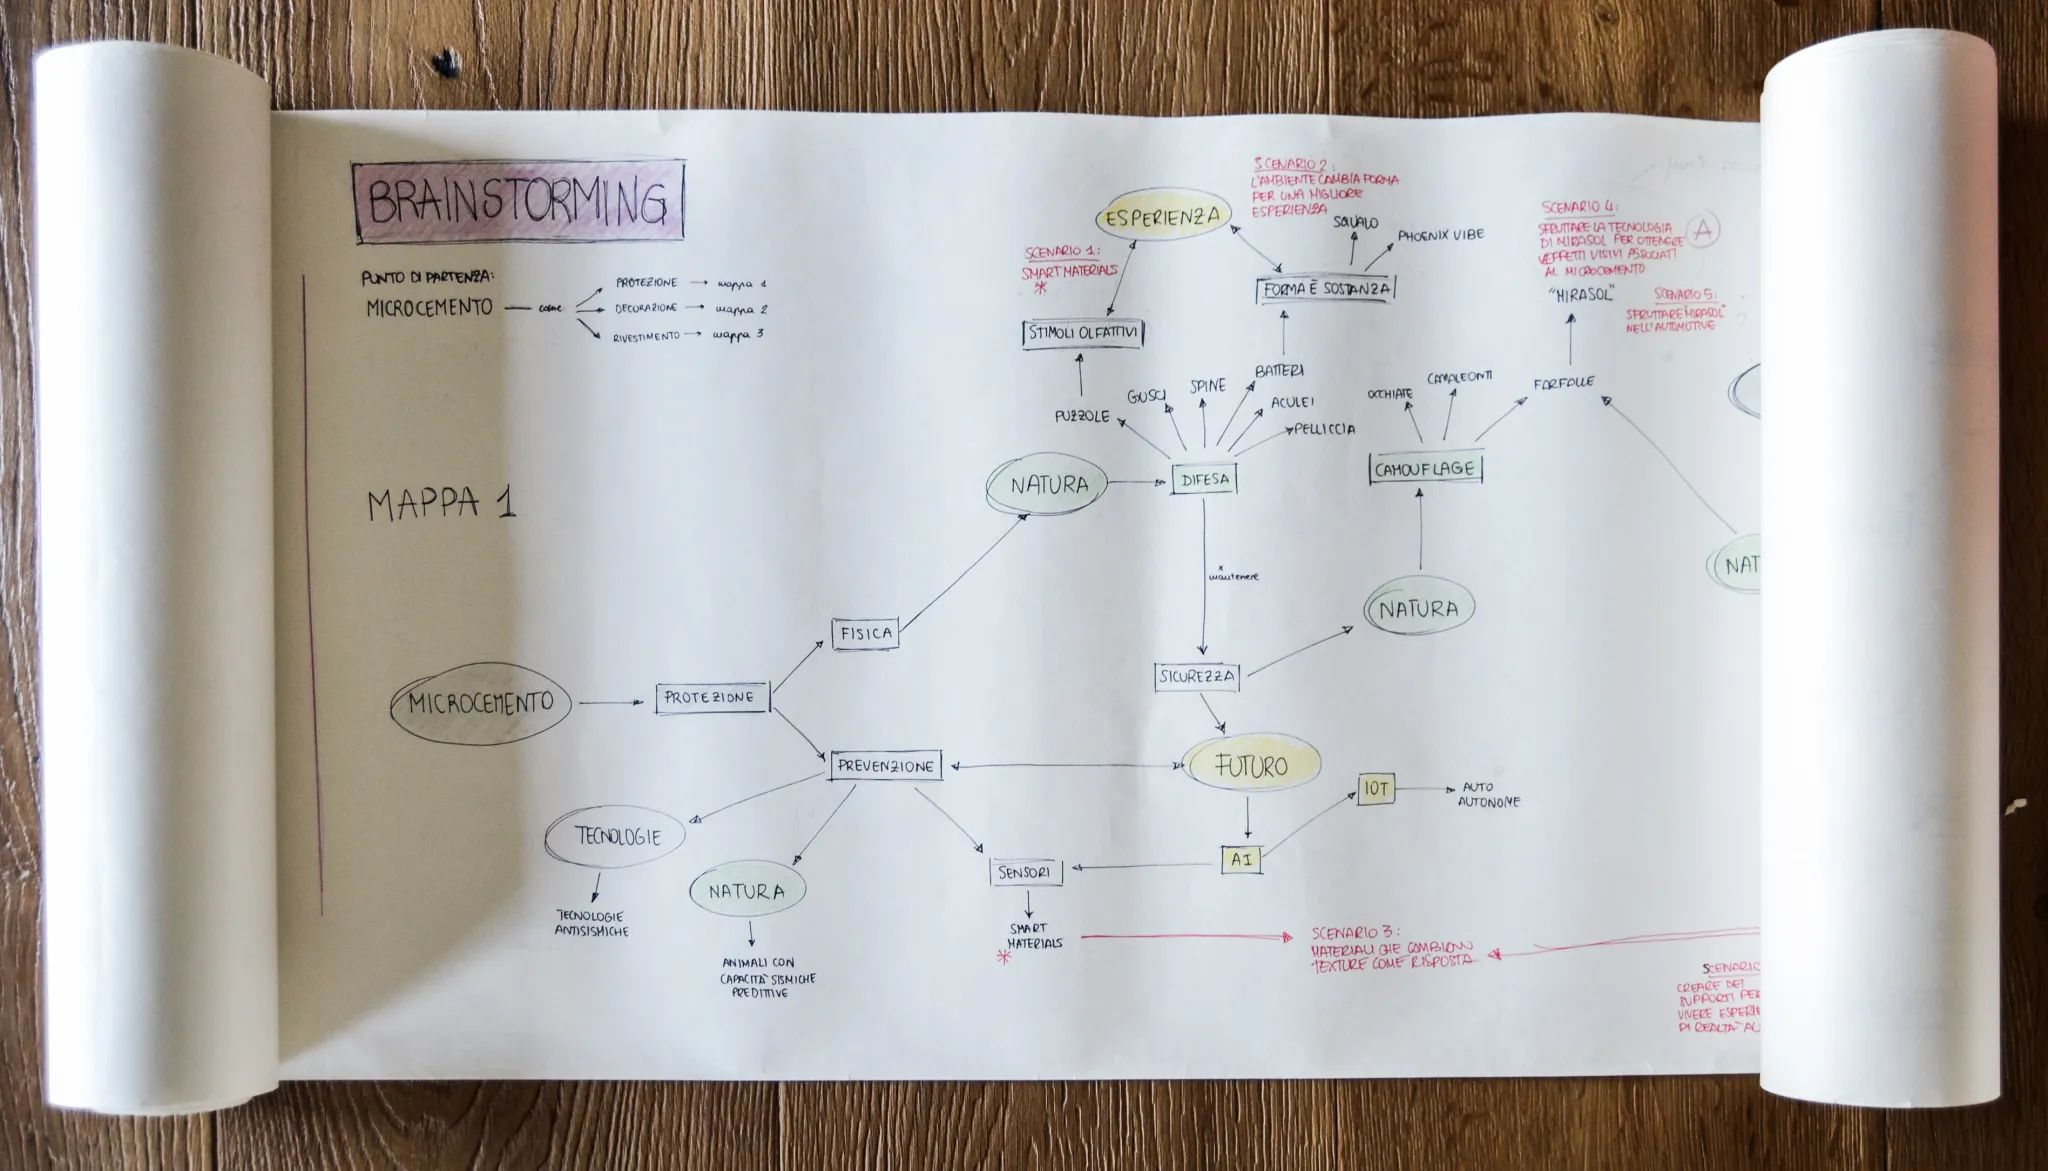 BRAINSTORMING
PUNTO DI PARTENZA:
MICROCEMENTO
come
PROTEZIONE
mappa 1
DECORAZIONE
mappa 2
RIVESTIMENTO
mappa 3
MAPPA 1
SCENARIO 1:
SMART MATERIALS
*
ESPERIENZA
SCENARIO 2:
L'AMBIENTE CAMBIA FORMA
PER UNA MIGLIORE
ESPERIENZA
SQUALO
PHOENIX VIBE
FORMA È SOSTANZA
STIMOLI OLFATTIVI
SCENARIO 4:
SFRUTTARE LA TECNOLOGIA
DI MIRASOL PER OTTENERE
EFFETTI VISIVI ASSOCIATI
AL MICROCEMENTO
A
"MIRASOL"
SCENARIO 5:
SFRUTTARE "MIRASOL"
NELL'AUTOMOTIVE
PUZZOLE
GUSCI
SPINE
BATTERI
ACULEI
PELLICCIA
OCCHIATE
CAMALEONTI
FARFALLE
NATURA
DIFESA
CAMOUFLAGE
x
mantenere
NAT
NATURA
FISICA
SICUREZZA
MICROCEMENTO
PROTEZIONE
PREVENZIONE
FUTURO
IOT
AUTO
AUTONOME
TECNOLOGIE
NATURA
SENSORI
AI
TECNOLOGIE
ANTISISMICHE
ANIMALI CON
CAPACITÀ SISMICHE
PREDITTIVE
SMART
MATERIALS
*
SCENARIO 3:
MATERIALI CHE CAMBIANO
TEXTURE COME RISPOSTA
SCENARIO
CREARE DEI
SUPPORTI PER
VIVERE ESPERIE
DI REALTÀ AU